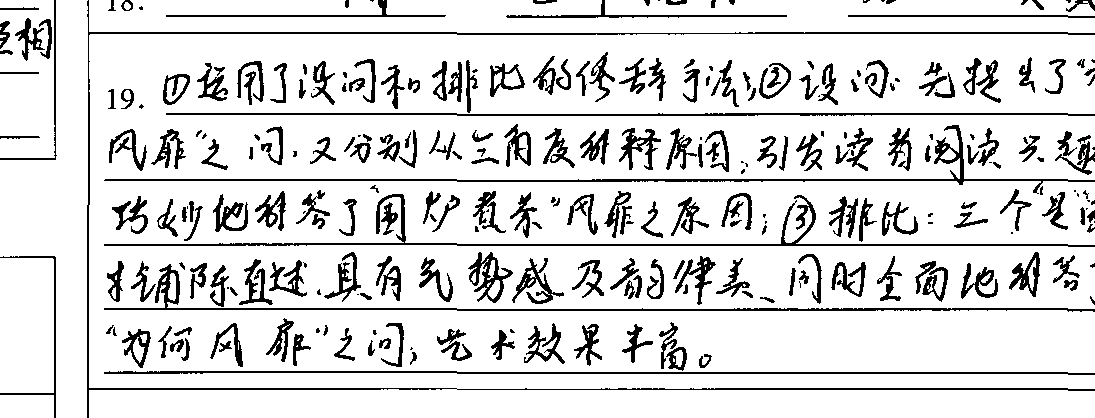 18.
臣相
19. ①运用了设问和排比的修辞手法;②设问:先提出了“
风靡”之问,又分别从三角度解释原因,引发读者阅读兴趣
巧妙地解答了“围炉煮茶”风靡之原因;③排比:三个“是”
铺陈直述,具有气势感及韵律美、同时全面地解答
“为何风靡”之问,艺术效果丰富。